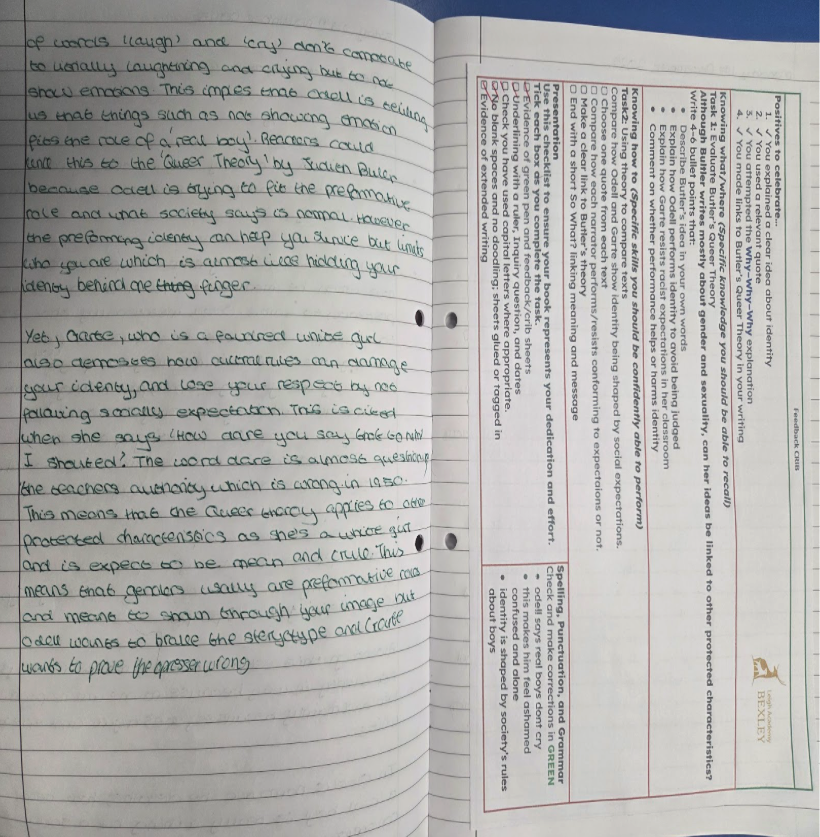 of words 'laugh' and 'cry' don't
to but to not
show emotions. This imples that Odell is telling
us that things such as not showing emotion
fits the role of a 'real boy'. Readers could
link this to the 'Queer Theory' by Butler
because Odell is trying to fit the preformative
role and what society says is normal. However
the preforming identy can help you but limits
who you are which is almost like hidding your
identy behind one thing finger.
Yet, Garte, who is a white girl
also how rules can damage
your identy, and lose your respect by not
following socially expectation. This is cited
when she says 'How dare you say that to
I shouted'. The word dare is almost
the teachers authority which is wrong in 1950.
This means that the Queer theory applies to other
protected characteristics as she's a white girl
and is expect to be mean and crule. This
means that genders usally are preformative roles
and means to shown through your image but
Odell wants to the and
wants to prove the wrong
Feedback CRIB
Leigh Academy
BEXLEY
Positives to celebrate...
1. ✓ You explained a clear idea about identity
2. ✓ You used a relevant quote
3. ✓ You attempted the Why-Why-Why explanation
4. ✓ You made links to Butler's Queer Theory in your writing
Knowing what/where (Specific knowledge you should be able to recall)
Task 1: Evaluate Butler's Queer Theory
Although Butler writes mostly about gender and sexuality, can her ideas be linked to other protected characteristics?
Write 4-6 bullet points that:
• Describe Butler's idea in your own words
• Explain how Odell performs identity to avoid being judged
• Explain how Garte resists racist expectations in her classroom
• Comment on whether performance helps or harms identity
Knowing how to (Specific skills you should be confidently able to perform)
Task2: Using theory to compare texts
Compare how Odell and Garte show identity being shaped by social expectations.
☐ Choose one quote from each text
☐ Compare how each narrator performs/resists conforming to expectaions or not.
☐ Make a clear link to Butler's theory
☐ End with a short So What? linking meaning and message
Presentation
Use this checklist to ensure your book represents your dedication and effort.
Tick each box as you complete the task.
☐ Evidence of green pen and feedback/crib sheets
☐ Underlining with a ruler, Inquiry question, and dates
☐ Check you have used capital letters where appropriate.
☐ No blank spaces and no doodling; sheets glued or tagged in
☐ Evidence of extended writing
Spelling, Punctuation, and Grammar
Check and make corrections in GREEN
• odell says real boys dont cry
• this makes him feel ashamed
confused and alone
• identity is shaped by society's rules
about boys